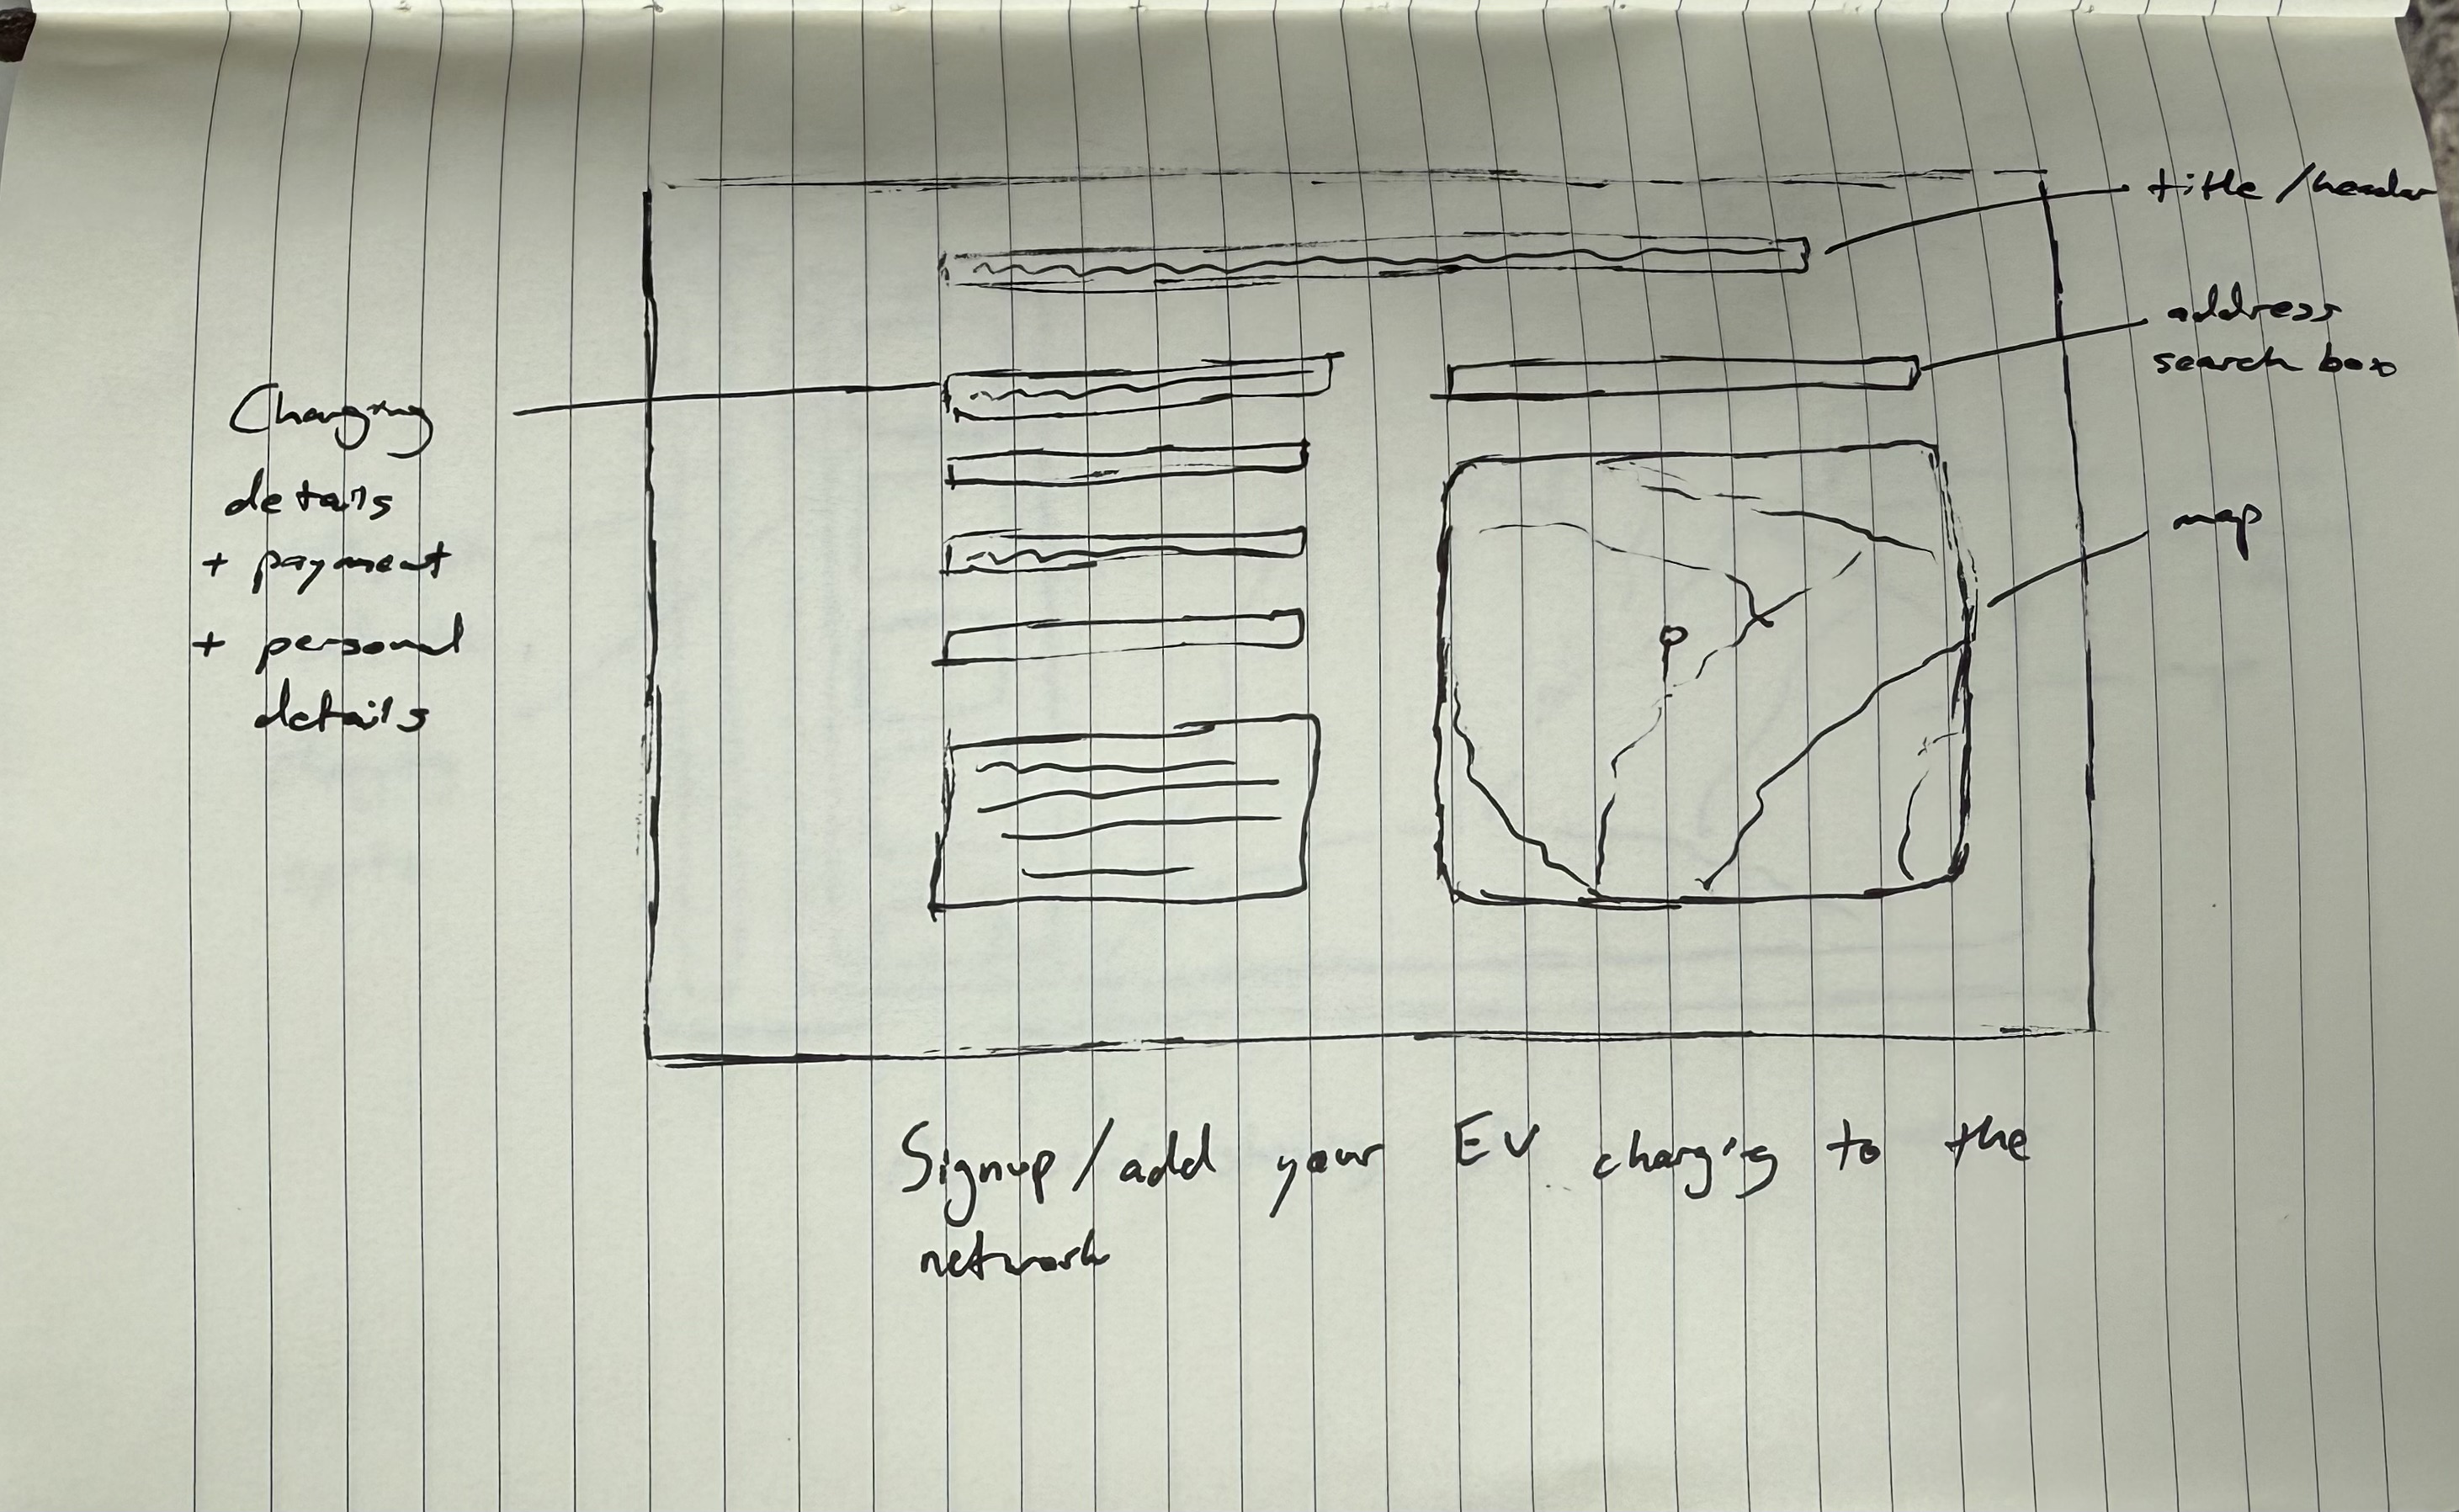 title/header
address
search box
Charging
details
+ payment
+ personal
details
map
Signup/add your EV charging to the
network